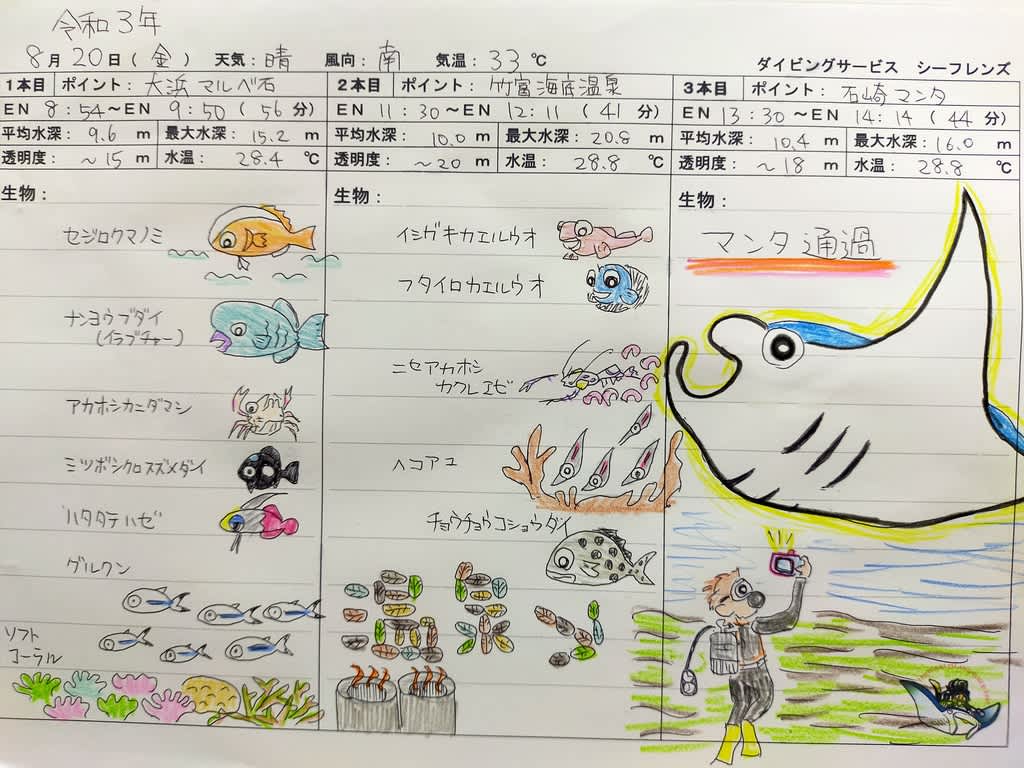 令和3年
8月20日(金) 天気:晴 風向:南 気温:33℃
ダイビングサービス シーフレンズ
1本目 ポイント:大浜マルベ石
EN 8:54〜EN 9:50(56分)
平均水深:9.6m 最大水深:15.2m
透明度:〜15m 水温:28.4℃
生物:
セジロクマノミ
ナンヨウブダイ
(イラブチャー)
アカホシカニダマシ
ミツボシクロスズメダイ
ハタタテハゼ
グルクン
ソフト
コーラル
2本目 ポイント:竹富海底温泉
EN 11:30〜EN 12:11(41分)
平均水深:10.0m 最大水深:20.8m
透明度:〜20m 水温:28.8℃
生物:
イシガキカエルウオ
フタイロカエルウオ
ニセアカホシ
カクレエビ
ヘコアユ
チョウチョウコショウダイ
3本目 ポイント:石崎マンタ
EN 13:30〜EN 14:14(44分)
平均水深:10.4m 最大水深:16.0m
透明度:〜18m 水温:28.8℃
生物:
マンタ通過